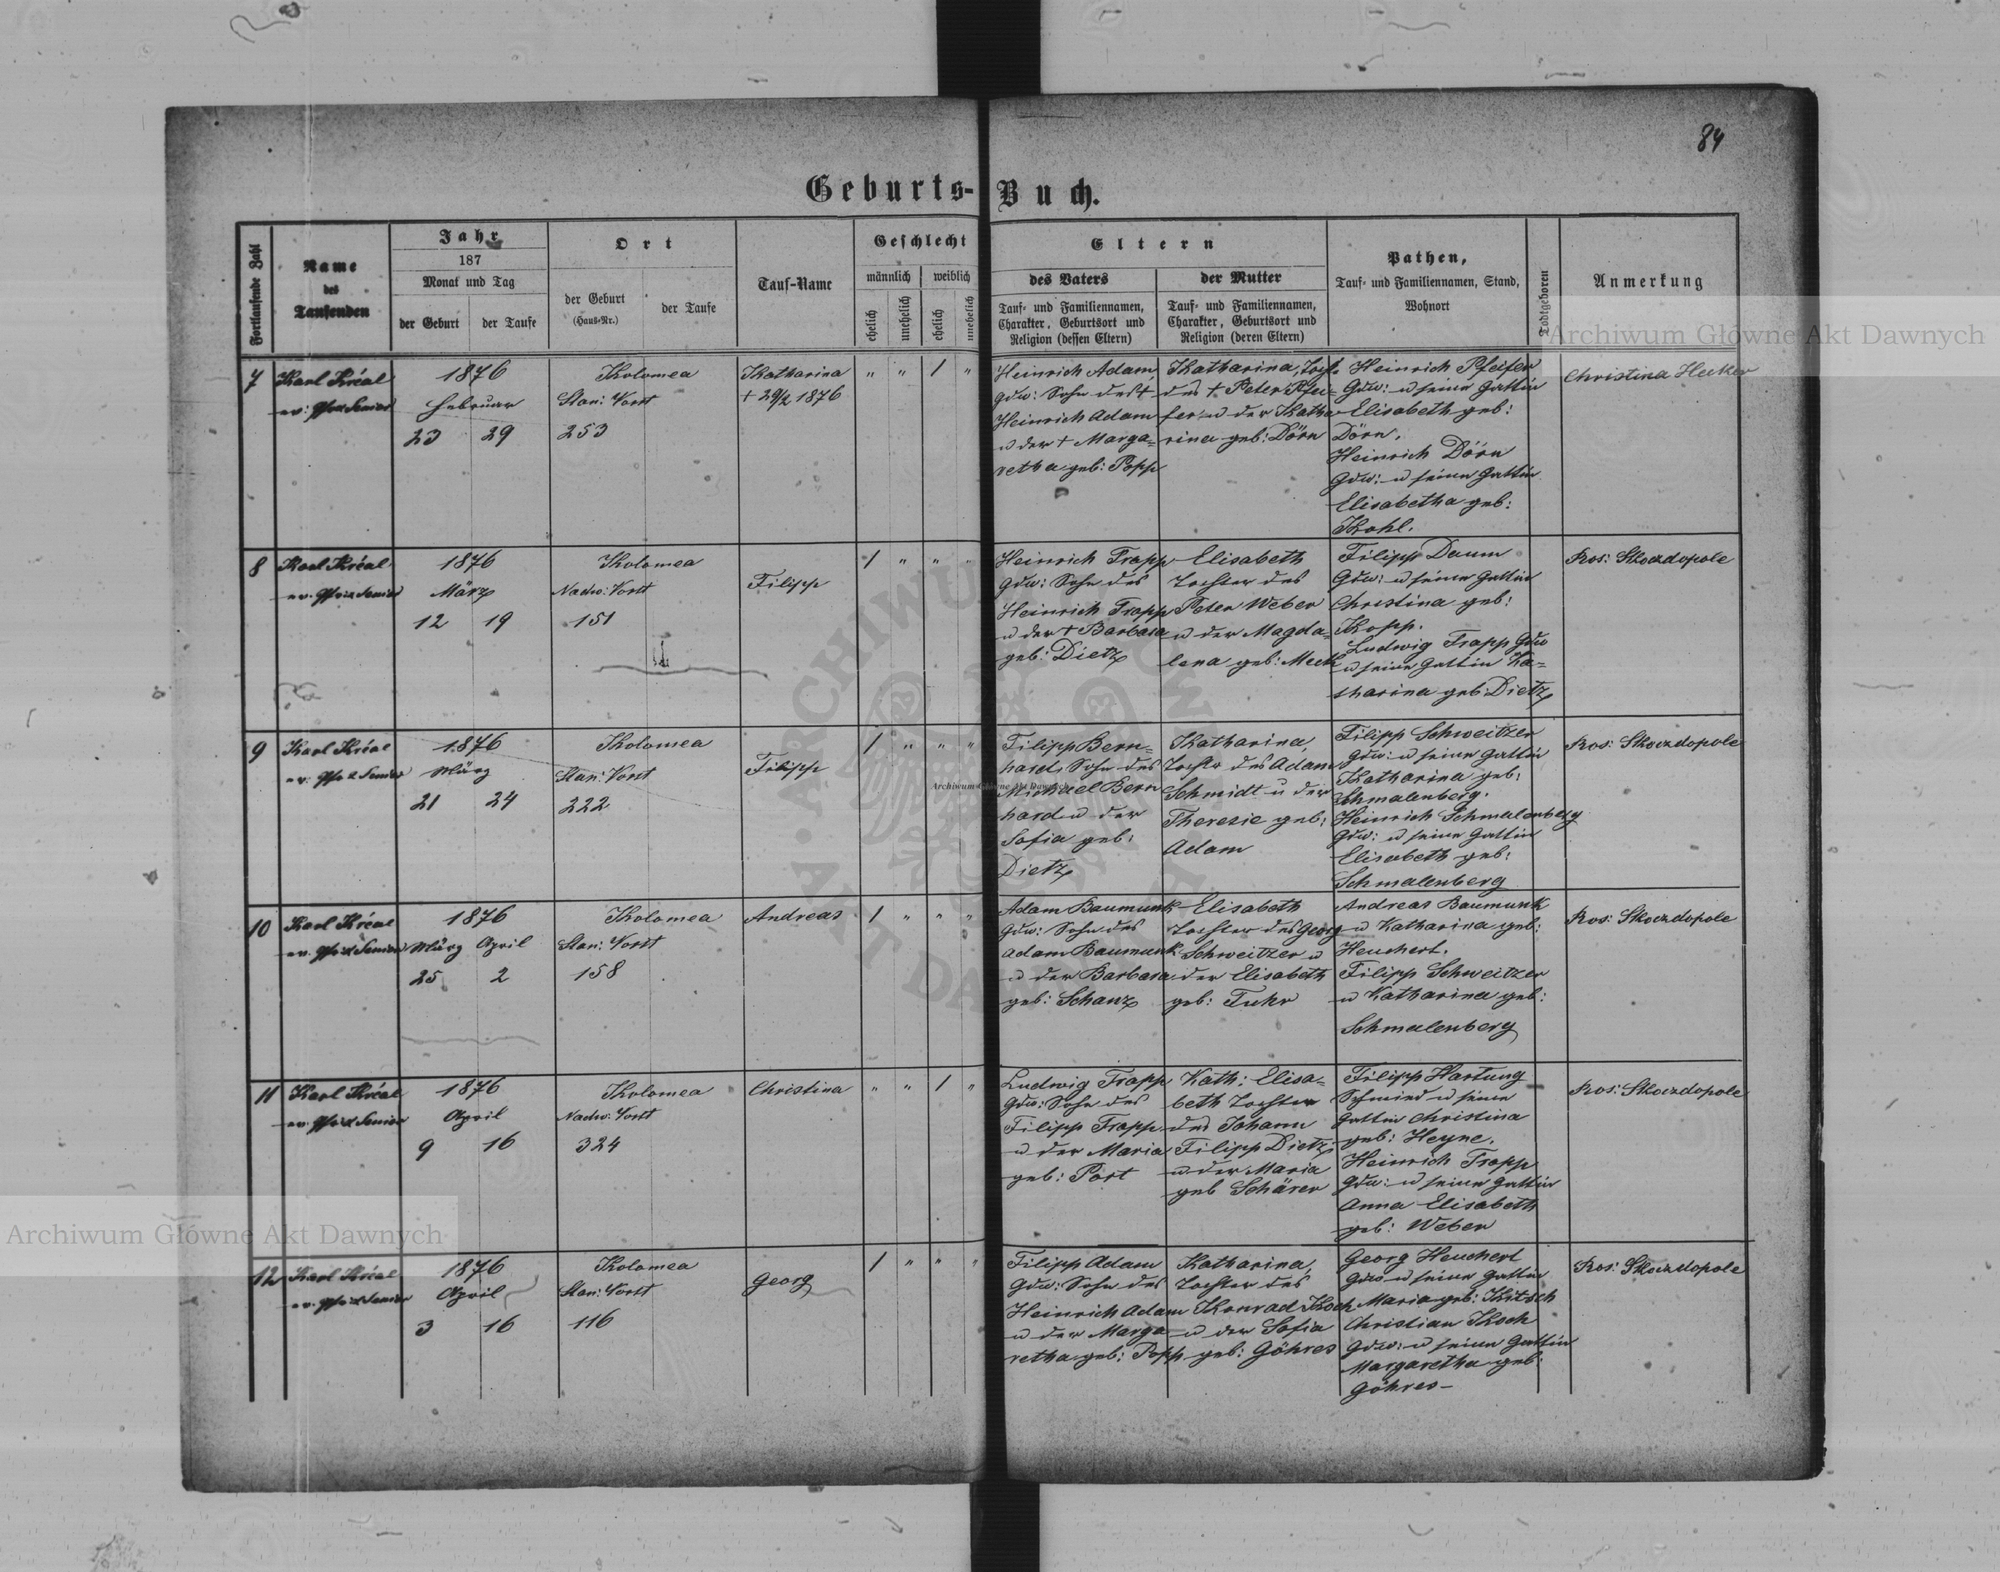 84
Geburts-Buch.
Fortlaufende Zahl
Name
des
Taufenden
Jahr
187
Monat und Tag
der Geburt
der Taufe
Ort
der Geburt
(Haus-Nr.)
der Taufe
Tauf-Name
Geschlecht
männlich
weiblich
ehelich
unehelich
ehelich
unehelich
Eltern
des Vaters
Tauf- und Familiennamen,
Charakter, Geburtsort und
Religion (dessen Eltern)
der Mutter
Tauf- und Familiennamen,
Charakter, Geburtsort und
Religion (deren Eltern)
Pathen,
Tauf- und Familiennamen, Stand,
Wohnort
Todtgeboren
Anmerkung
7
Karl Kréal
ev: Senior
1876
Februar
23 29
Kolomea
Stan: Vorst
253
Katharina
+ 29/2 1876
" " / "
Heinrich Adam,
Gdw: Sohn des +
Heinrich Adam
u der + Marga=
retha geb: Popp
Katharina, Tocht.
des + Peter Pfei-
fer u der Katha
rina geb: Dörn
Heinrich Pfeifer
Gdw: u seine Gattin
Elisabeth geb:
Dörn.
Heinrich Dörn
Gdw: u seine Gattin
Elisabetha geb:
Kohl.
Christina Hecker
8
Karl Kréal
ev: Senior
1876
März
12 19
Kolomea
Nadw: Vorst
151
Filipp
/ " " "
Heinrich Trapp
Gdw: Sohn des
Heinrich Trapp
u der + Barbara
geb: Dietz
Elisabeth
Tochter des
Peter Weber
u der Magda=
lena geb: Meck
Filipp Daum
Gdw: u seine Gattin
Christina geb:
Kopp.
Ludwig Trapp Gdw
u seine Gattin Ka=
tharina geb: Dietz
Ros: Skoczdopole
9
Karl Kréal
ev: Senior
1876
März
21 24
Kolomea
Stan: Vorst
222
Filipp
/ " " "
Filipp Bern=
hard, Sohn des
Michael Bern
hard u der
Sofia geb:
Dietz
Katharina,
Tochter des Adam
Schmidt u der
Theresie geb:
Adam
Filipp Schweitzer
Gdw: u seine Gattin
Katharina geb:
Schmalenberg.
Heinrich Schmalenberg
Gdw: u seine Gattin
Elisabeth geb:
Schmalenberg
Ros: Skoczdopole
10
Karl Kréal
ev: Senior
1876
März April
25 2
Kolomea
Stan: Vorst
158
Andreas
/ " " "
Adam Baumunk
Gdw: Sohn des
Adam Baumunk
u der Barbara
geb: Schanz
Elisabeth
Tochter des Georg
Schweitzer u
der Elisabeth
geb: Fuhr
Andreas Baumunk
u Katharina geb:
Heuchert.
Filipp Schweitzer
u Katharina geb:
Schmalenberg
Ros: Skoczdopole
11
Karl Kréal
ev: Senior
1876
April
9 16
Kolomea
Nadw: Vorst
324
Christina
" " / "
Ludwig Trapp
Gdw: Sohn des
Filipp Trapp
u der Maria
geb: Port
Kath: Elisa=
beth Tochter
des Johann
Filipp Dietz
u der Maria
geb Schärer
Filipp Hartung
Schmied u seine
Gattin Christina
geb: Heyne.
Heinrich Trapp
Gdw: u seine Gattin
Anna Elisabeth
geb: Weber
Ros: Skoczdopole
12
Karl Kréal
ev: Senior
1876
April
3 16
Kolomea
Stan: Vorst
116
Georg
/ " " "
Filipp Adam
Gdw: Sohn des
Heinrich Adam
u der Marga
retha geb: Popp
Katharina,
Tochter des
Konrad Koch
u der Sofia
geb: Göhres
Georg Heuchert
Gdw u seine Gattin
Maria geb: Kitsch
Christian Koch
Gdw: u seine Gattin
Margaretha geb:
Göhres
Ros: Skoczdopole
Archiwum Główne Akt Dawnych
Archiwum Główne Akt Dawnych
Archiwum Główne Akt Dawnych